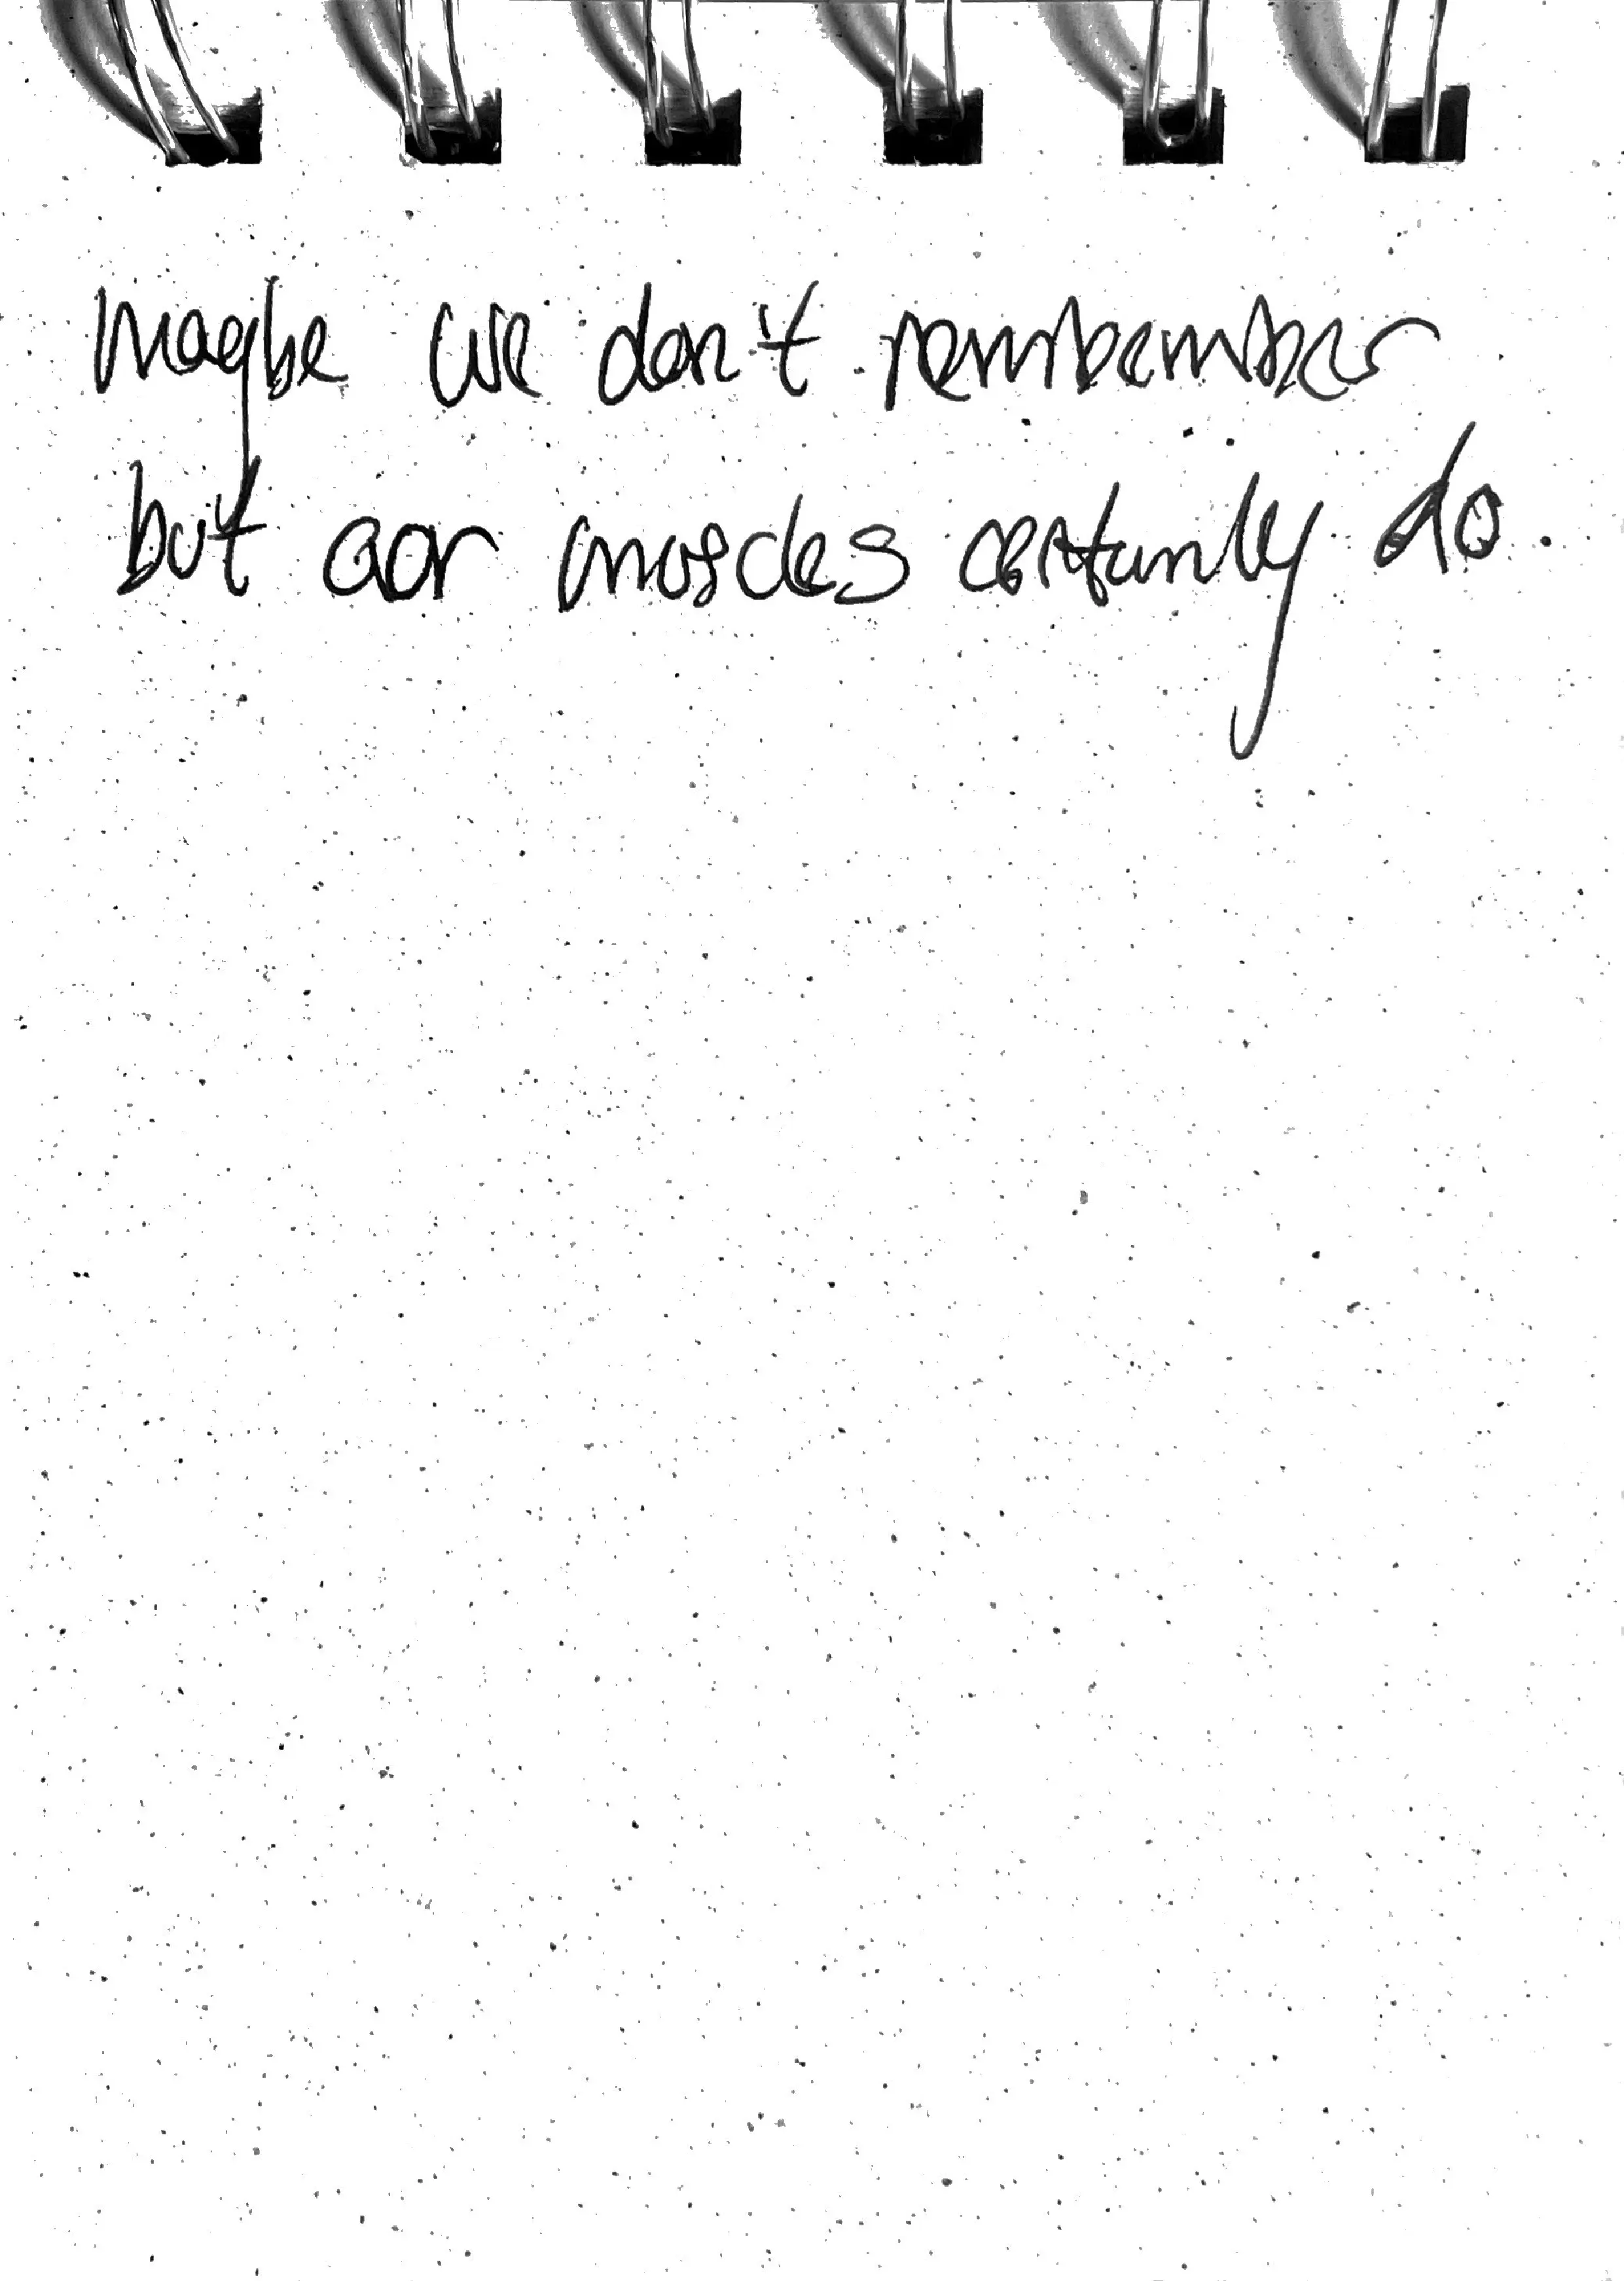 maybe we don't rembember
but our muscles certainly do.